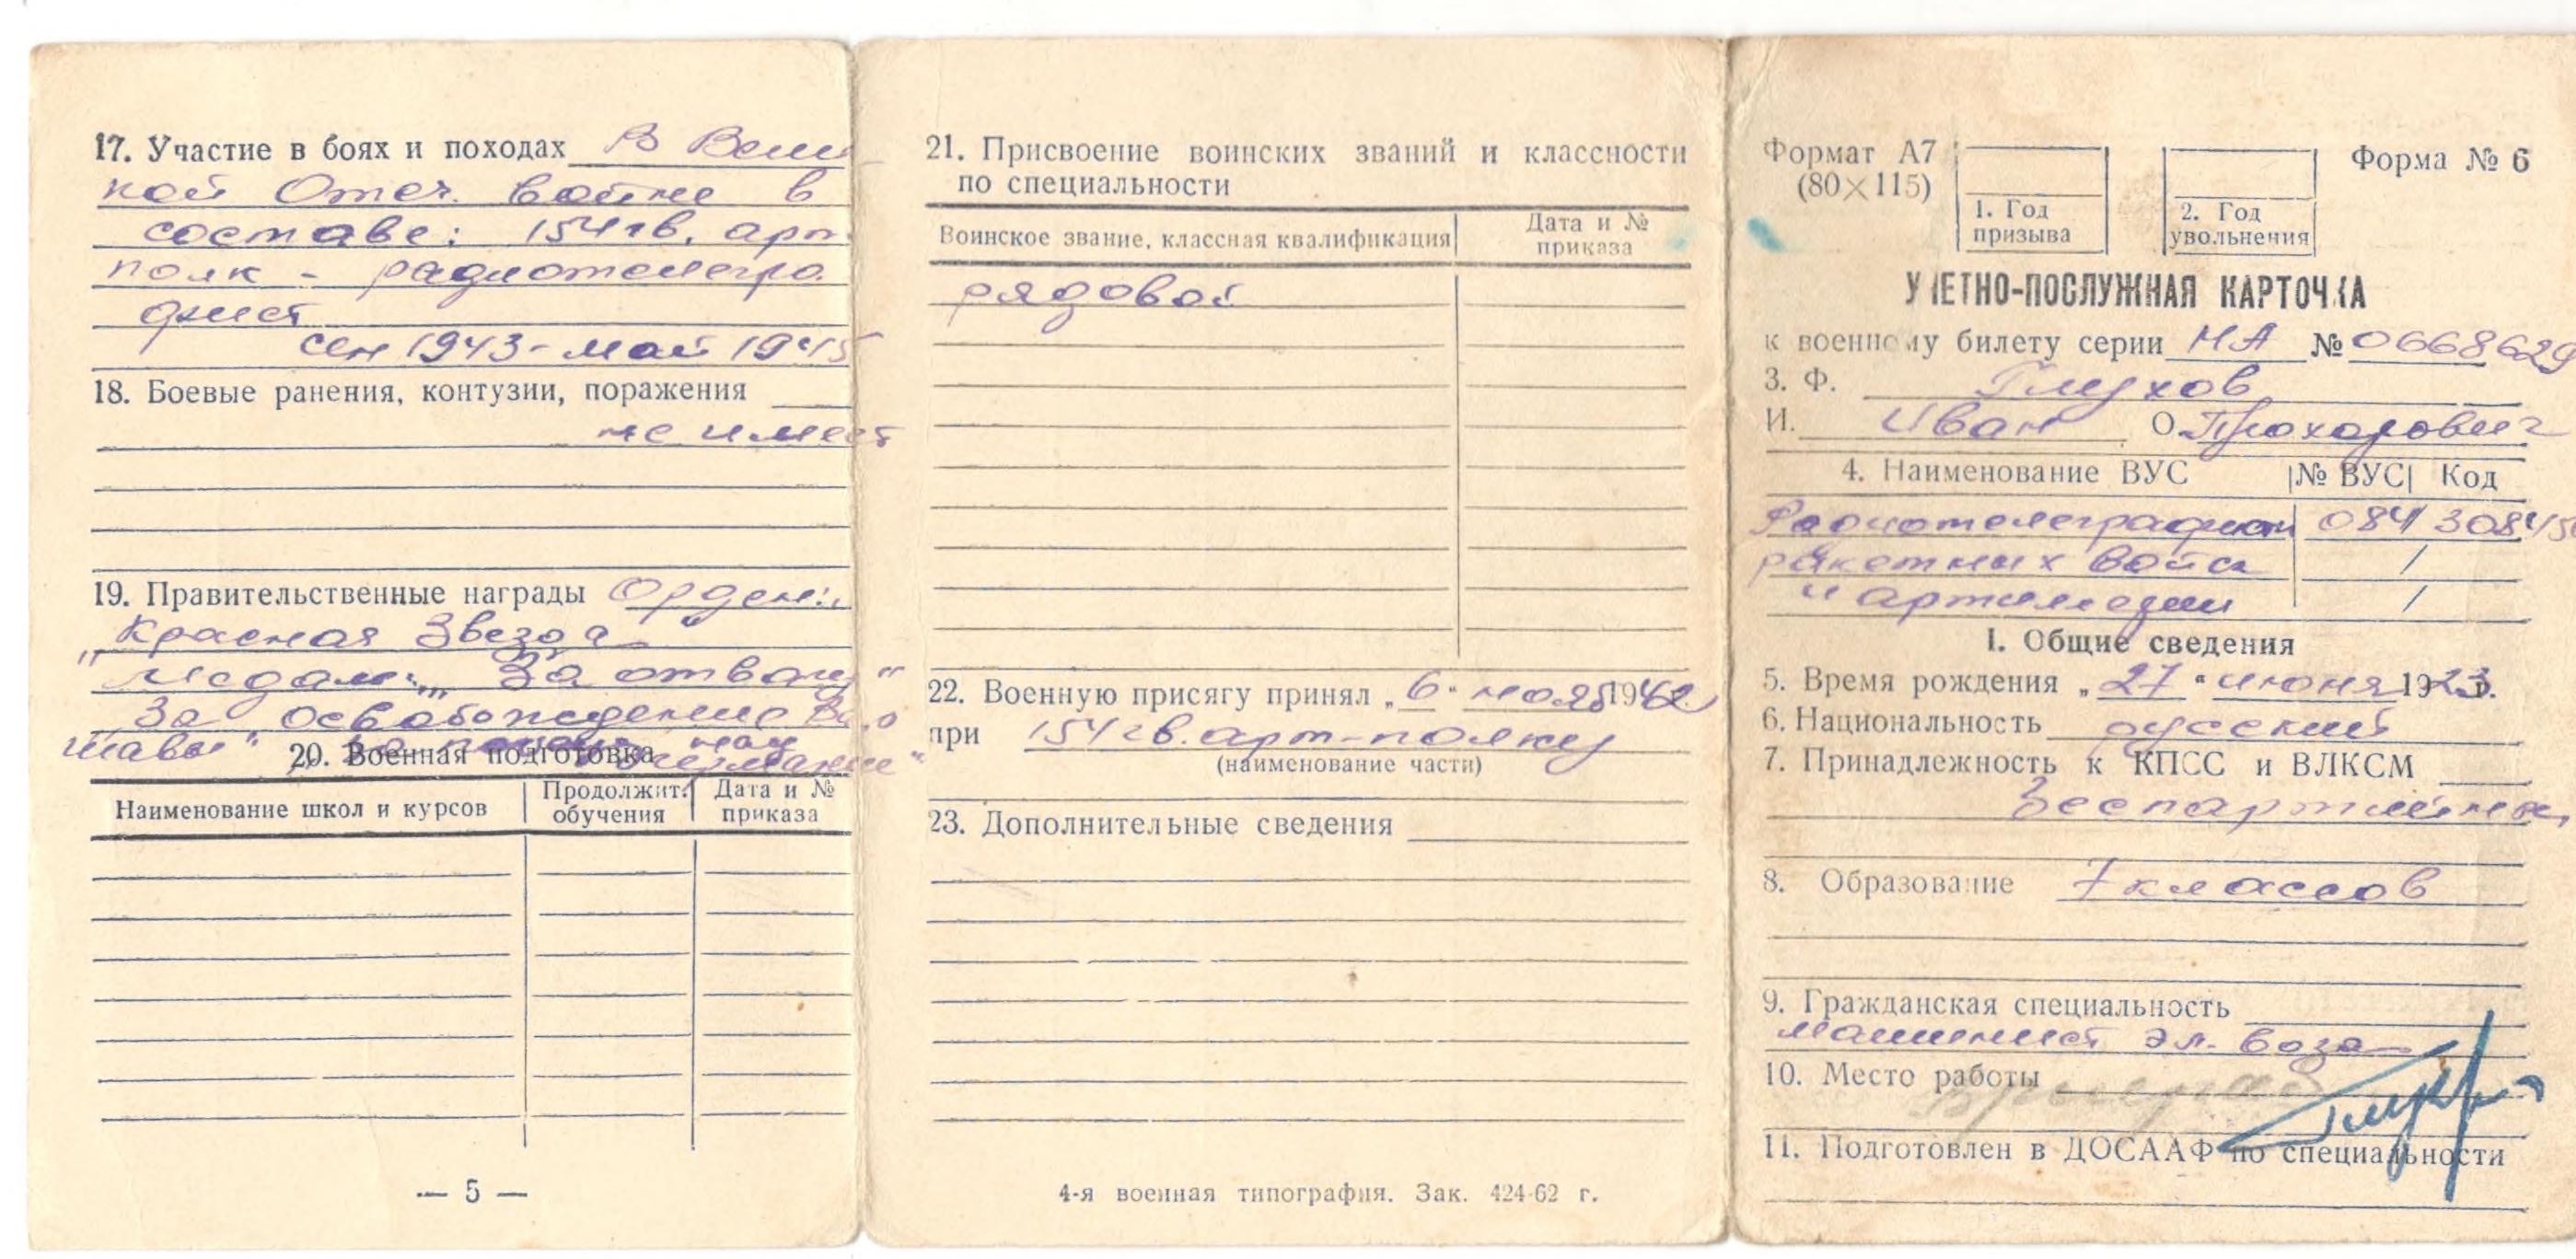 17. Участие в боях и походах В Вели
кой Отеч. войне в
составе: 154 гв. арт.
полк - радиотелегра
фист
сен 1943 - май 1945
18. Боевые ранения, контузии, поражения
не имеет
19. Правительственные награды Орден:
"Красная Звезда
медали: „За отвагу"
За освобождение Вар
шавы" Германией"
20. Военная подготовка
Наименование школ и курсов
Продолжит. обучения
Дата и № приказа
— 5 —
21. Присвоение воинских званий и классности
по специальности
Воинское звание, классная квалификация
Дата и № приказа
рядовой
22. Военную присягу принял „6" нояб 1942
при 154 гв. арт-полку
(наименование части)
23. Дополнительные сведения
4-я военная типография. Зак. 424-62 г.
Формат А7
(80×115)
1. Год призыва
2. Год увольнения
Форма № 6
УЧЕТНО-ПОСЛУЖНАЯ КАРТОЧКА
к военному билету серии НА № 0668629
3. Ф. Глухов
И. Иван О. Прохорович
4. Наименование ВУС |№ ВУС| Код
Радиотелеграфист 084 30845
ракетных войск /
и артиллерии /
I. Общие сведения
5. Время рождения „27" июня 1923 г.
6. Национальность русский
7. Принадлежность к КПСС и ВЛКСМ
Беспартийн
8. Образование 7 классов
9. Гражданская специальность
машинист эл. воза
10. Место работы
11. Подготовлен в ДОСААФ по специальности